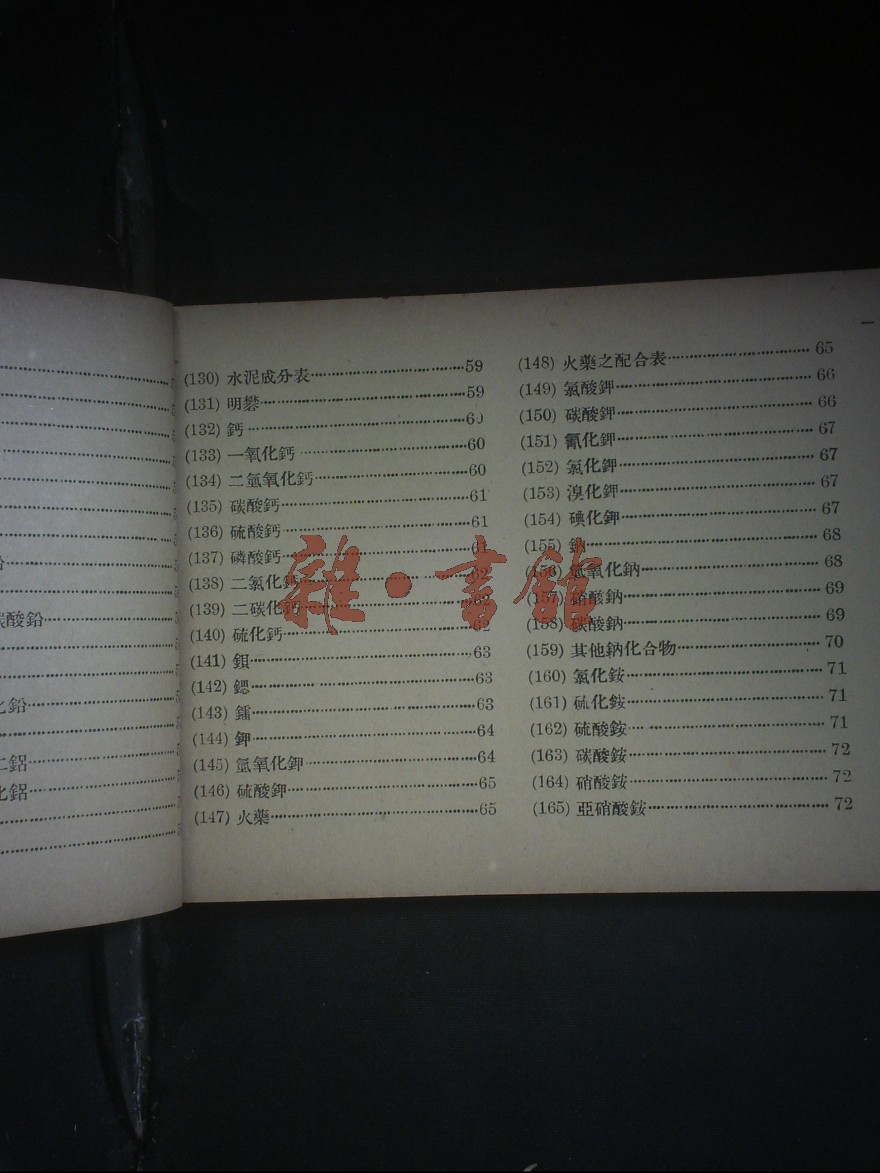 碳酸鉛
化鉛
二鋁
化鋁
(130) 水泥成分表 59
(131) 明礬 59
(132) 鈣 60
(133) 一氧化鈣 60
(134) 二氫氧化鈣 60
(135) 碳酸鈣 61
(136) 硫酸鈣 61
(137) 磷酸鈣 61
(138) 二氯化鈣 62
(139) 二碳化鈣 62
(140) 硫化鈣 62
(141) 鋇 63
(142) 鍶 63
(143) 鐳 63
(144) 鉀 64
(145) 氫氧化鉀 64
(146) 硫酸鉀 65
(147) 火藥 65
一
(148) 火藥之配合表 65
(149) 氯酸鉀 66
(150) 碳酸鉀 66
(151) 氰化鉀 67
(152) 氯化鉀 67
(153) 溴化鉀 67
(154) 碘化鉀 67
(155) 鈉 68
(156) 氫氧化鈉 68
(157) 硝酸鈉 69
(158) 碳酸鈉 69
(159) 其他鈉化合物 70
(160) 氯化銨 71
(161) 硫化銨 71
(162) 硫酸銨 71
(163) 碳酸銨 72
(164) 硝酸銨 72
(165) 亞硝酸銨 72
雜·書館